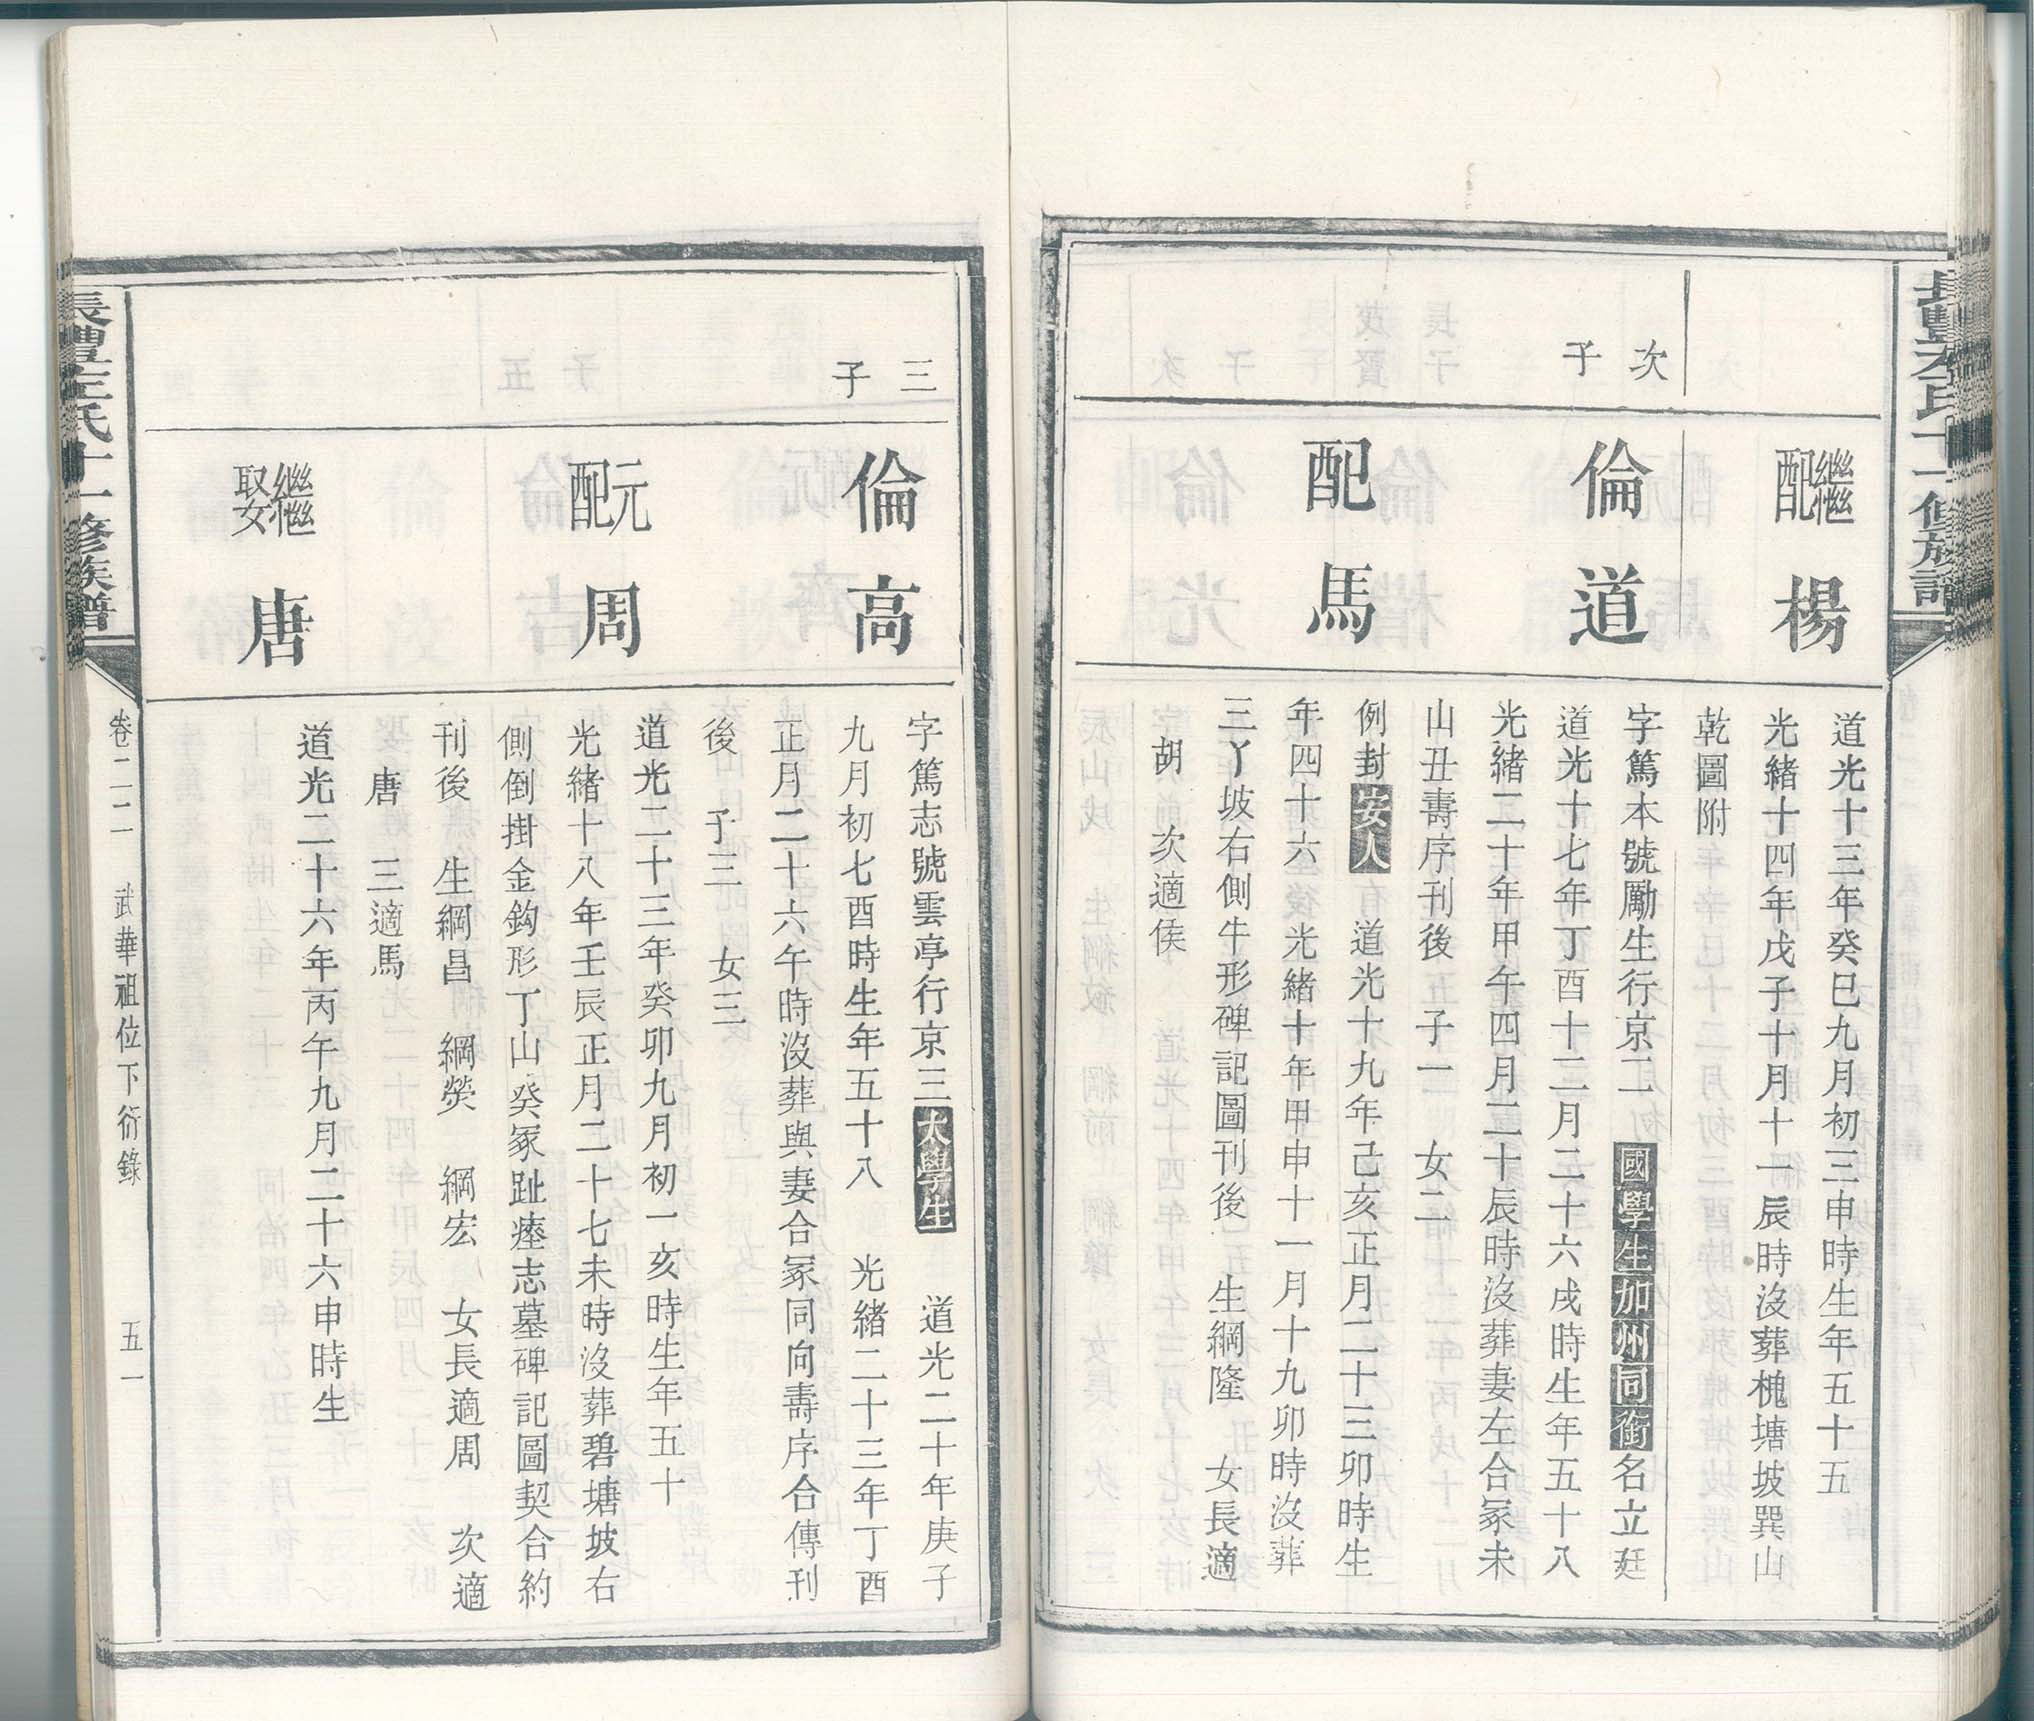 長豐李氏十一修族譜
繼配
楊
道光十三年癸巳九月初三申時生年五十五
光緒十四年戊子十月十一辰時沒葬槐塘坡巽山
乾圖附
次子
倫道
字篤本號勵生行京二 國學生加州同銜名立廷
道光十七年丁酉十二月二十六戌時生年五十八
光緒二十年甲午四月二十辰時沒葬妻左合冢未
山丑壽序刊後 子一 女二
配馬
例封安人 道光十九年己亥正月二十三卯時生
年四十六 光緒十年甲申十一月十九卯時沒葬
三丫坡右側牛形碑記圖刊後 生綱隆 女長適
胡 次適侯
三子
倫高
字篤志號雲亭行京三太學生 道光二十年庚子
九月初七酉時生年五十八 光緒二十三年丁酉
正月二十六午時沒葬與妻合冢同向壽序合傳刊
後 子三 女三
元配
周
道光二十三年癸卯九月初一亥時生年五十
光緒十八年壬辰正月二十七未時沒葬碧塘坡右
側倒掛金鈎形丁山癸冢趾瘞志墓碑記圖契合約
刊後 生綱昌 綱熒 綱宏 女長適周 次適
唐 三適馬
繼娶
唐
道光二十六年丙午九月二十六申時生
長豐李氏十一修族譜
卷二二 武華祖位下衍錄 五一